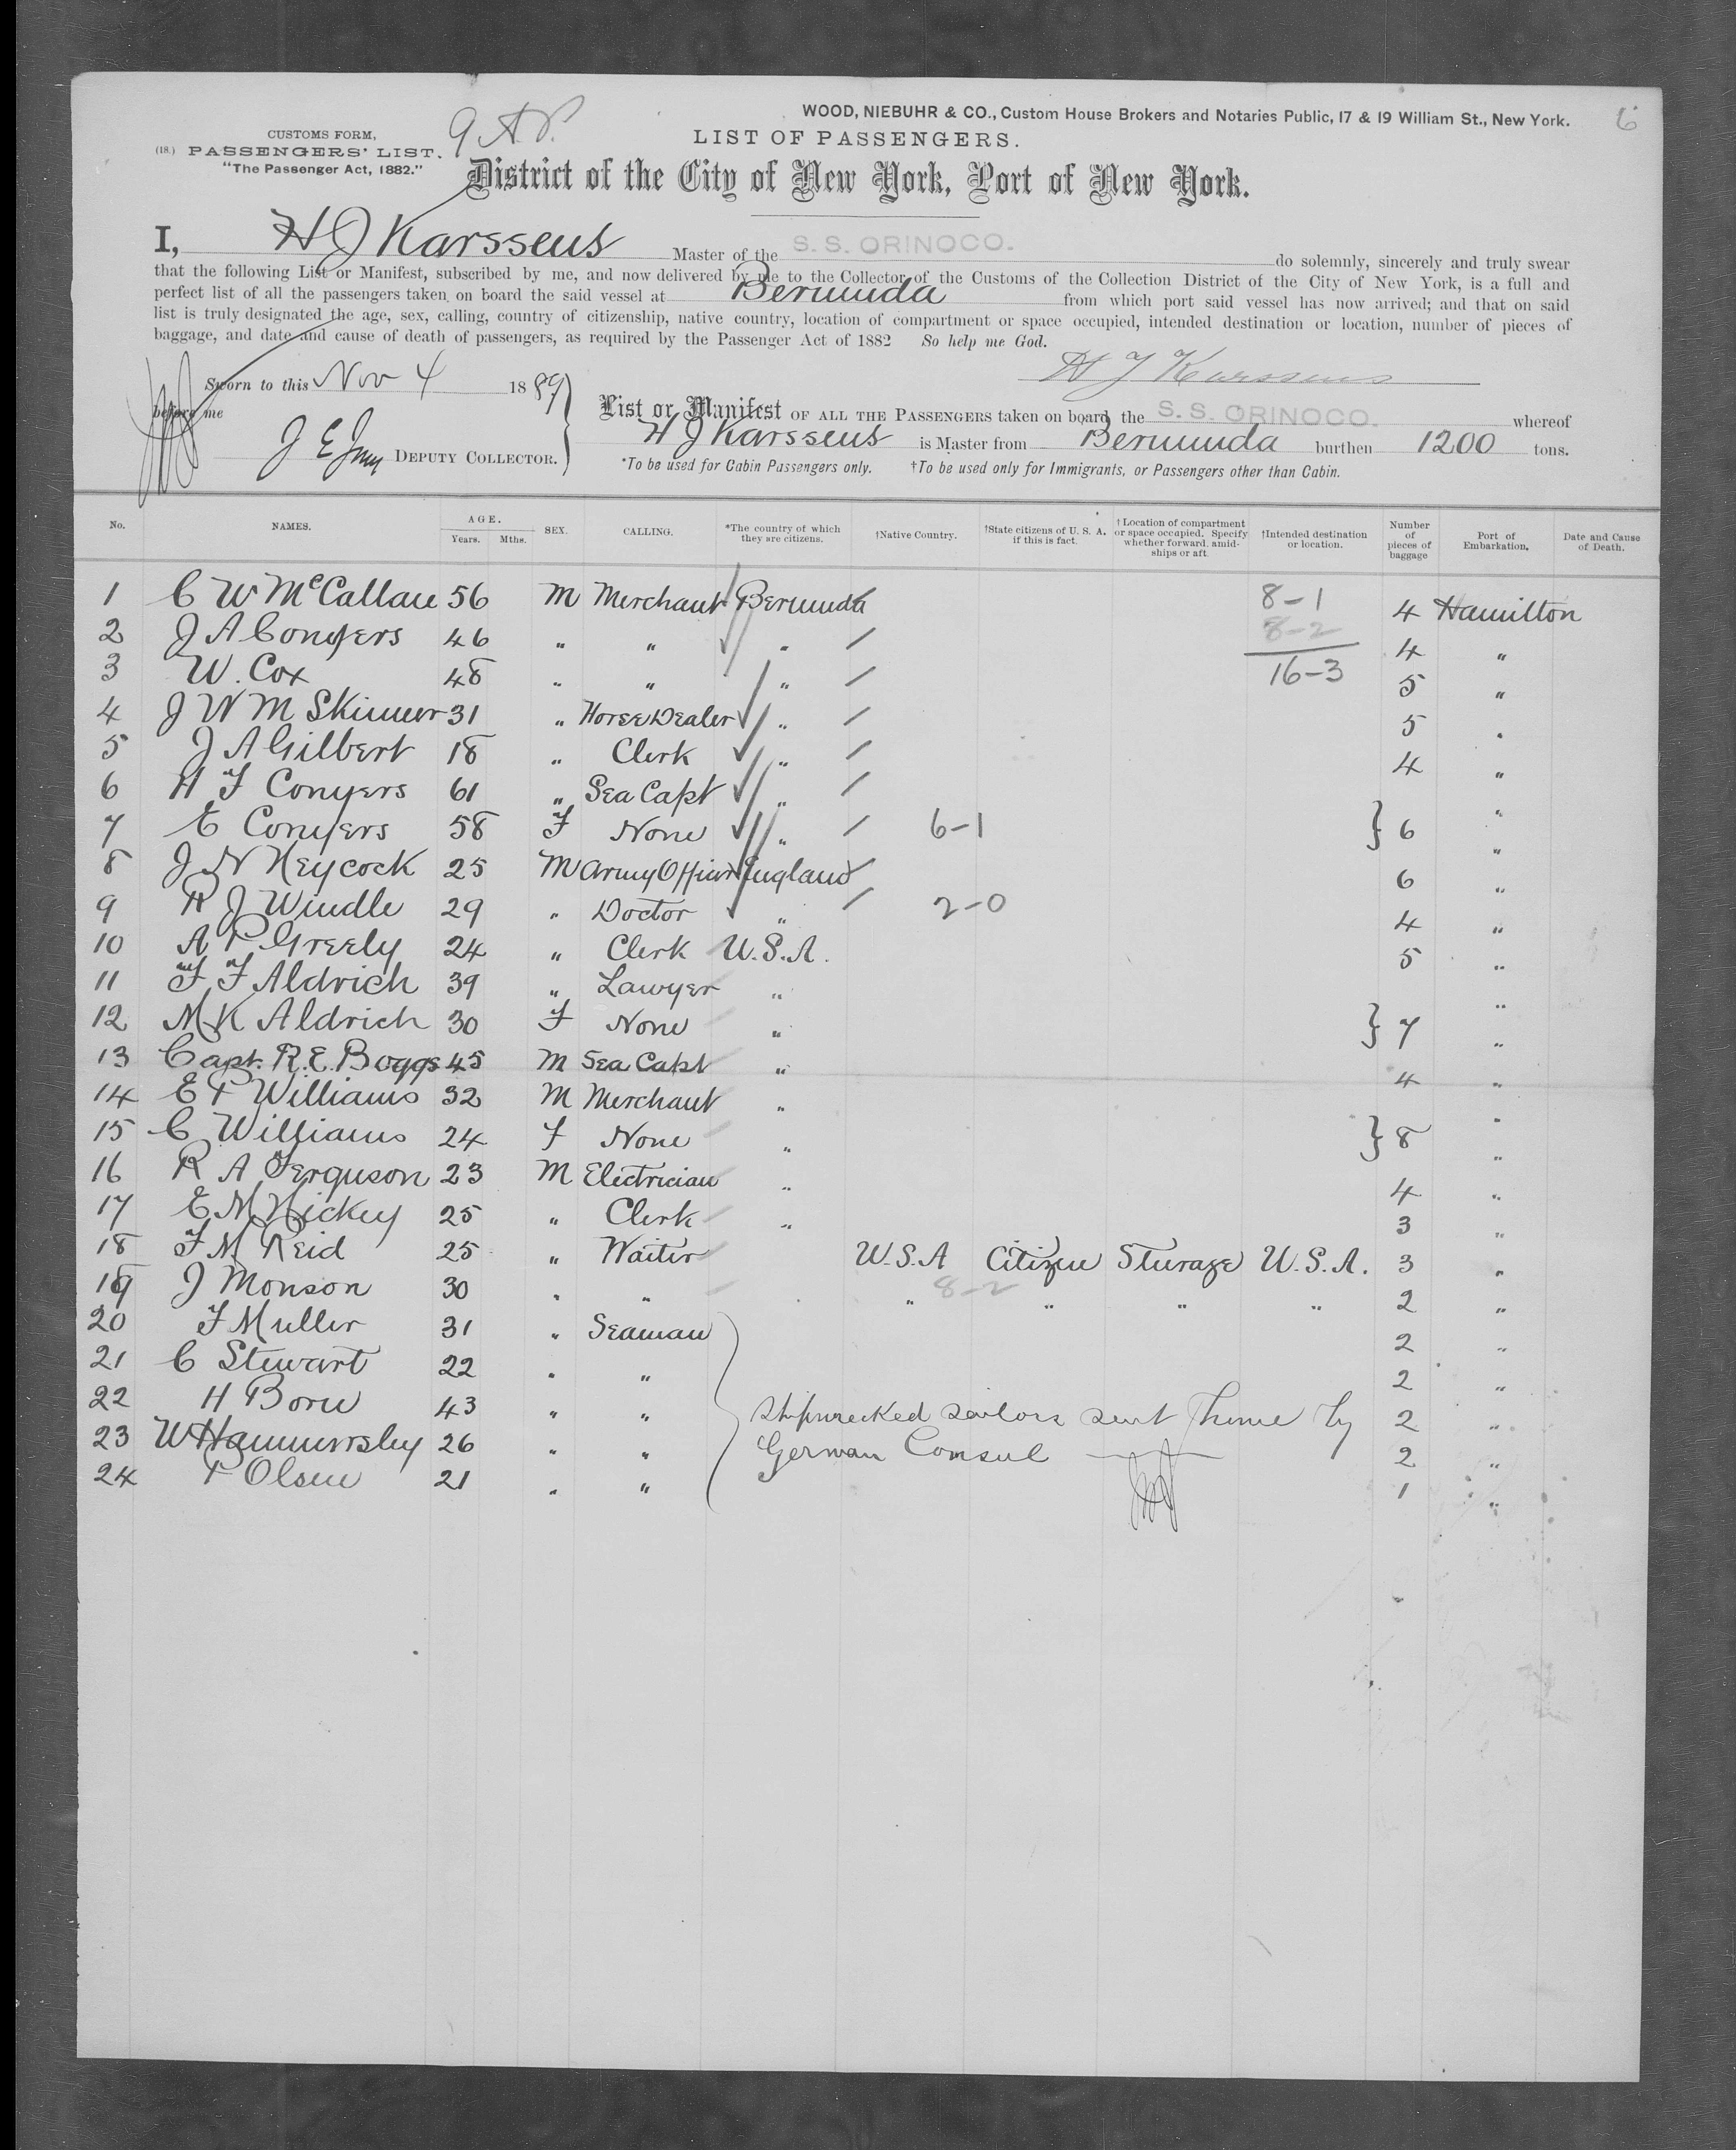 WOOD, NIEBUHR & CO., Custom House Brokers and Notaries Public, 17 & 19 William St., New York.
6
CUSTOMS FORM,
(18.) PASSENGERS' LIST.
"The Passenger Act, 1882."
LIST OF PASSENGERS.
District of the City of New York, Port of New York.
I, H J Karssens Master of the S. S. ORINOCO. do solemnly, sincerely and truly swear
that the following List or Manifest, subscribed by me, and now delivered by me to the Collector of the Customs of the Collection District of the City of New York, is a full and
perfect list of all the passengers taken on board the said vessel at Bermuda from which port said vessel has now arrived; and that on said
list is truly designated the age, sex, calling, country of citizenship, native country, location of compartment or space occupied, intended destination or location, number of pieces of
baggage, and date and cause of death of passengers, as required by the Passenger Act of 1882 So help me God.
H J Karssens
Sworn to this Nov 4 1889
before me
J E DEPUTY COLLECTOR.
List or Manifest OF ALL THE PASSENGERS taken on board the S. S. ORINOCO. whereof
H J Karssens is Master from Bermuda burthen 1200 tons.
*To be used for Cabin Passengers only. †To be used only for Immigrants, or Passengers other than Cabin.
No. NAMES. AGE. Years. Mths. SEX. CALLING. *The country of which they are citizens. †Native Country. †State citizens of U. S. A. if this is fact. †Location of compartment or space occupied. Specify whether forward, amidships or aft. †Intended destination or location. Number of pieces of baggage Port of Embarkation. Date and Cause of Death.
1 C W McCallan 56 M Merchant Bermuda 8-1 4 Hamilton
2 J A Conyers 46 " " " 8-2 4 "
3 W. Cox 48 " " " 16-3 5 "
4 J W M Skinner 31 " Horse Dealer " 5 "
5 J A Gilbert 18 " Clerk " 4 "
6 H F Conyers 61 " Sea Capt " "
7 E Conyers 58 F None " 6-1 } 6 "
8 J N Heycock 25 M Army Officer England 6 "
9 R J Windle 29 " Doctor " 2-0 4 "
10 A P Greely 24 " Clerk U.S.A. 5 "
11 F F Aldrich 39 " Lawyer " "
12 M K Aldrich 30 F None " } 7 "
13 Capt. R. E. Boggs 45 M Sea Capt " 4 "
14 E P Williams 32 M Merchant " "
15 C Williams 24 F None " } 8 "
16 R A Ferguson 23 M Electrician " 4 "
17 E M Hickey 25 " Clerk " 3 "
18 F M Reid 25 " Waiter U.S.A Citizen Sturage U.S.A. 3 "
19 J Monson 30 " " " 8-2 " " " 2 "
20 F Muller 31 " Seaman 2 "
21 C Stewart 22 " " 2 "
22 H Born 43 " " Shipwrecked sailors sent home by 2 "
23 W Hammersley 26 " " German Consul 2 "
24 P Olsen 21 " " 1 "